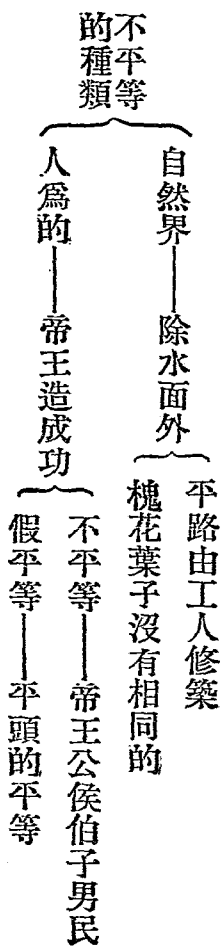 不平等
的種類
自然界——除水面外
平路由工人修築
槐花葉子沒有相同的
人爲的——帝王造成功
不平等——帝王公侯伯子男民
假平等——平頭的平等